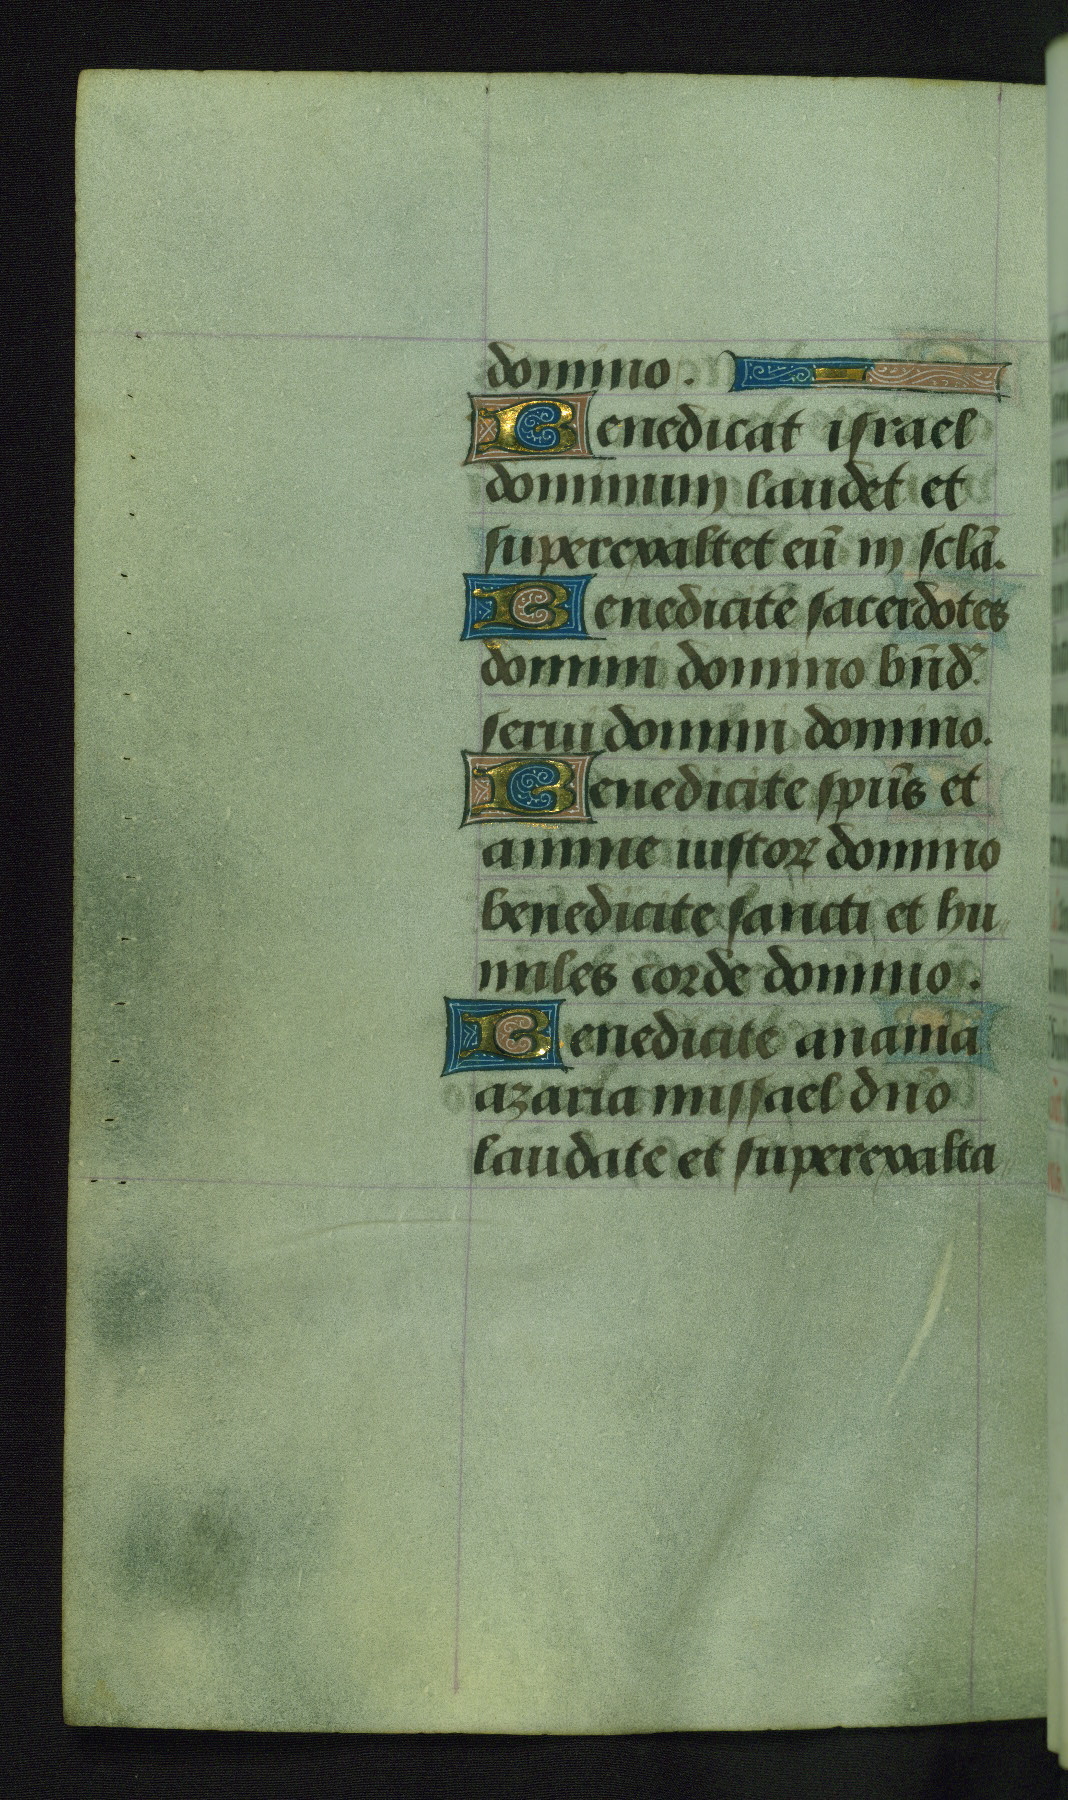 domino.
Benedicat israel
dominum laudet et
superexaltet eū in sclā.
Benedicite sacerdotes
domini domino bn̄d̄.
serui domini domino.
Benedicite spūs et
anime iustoꝝ domino
benedicite sancti et hu
miles corde domino.
Benedicite anania
azaria missael dn̄o
laudate et superexalta